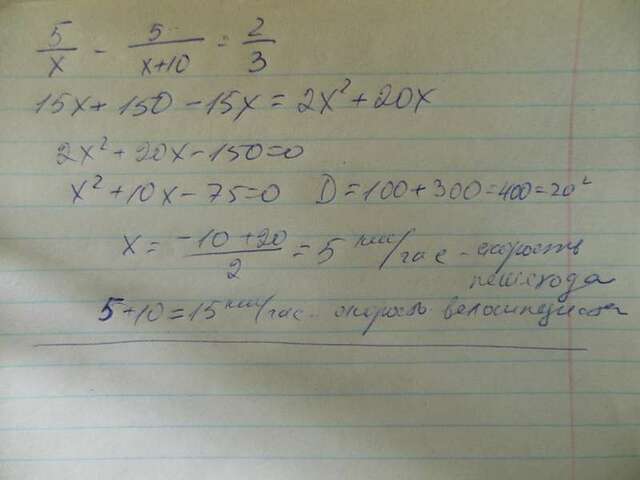 5/x - 5/(x+10) = 2/3
15x + 150 - 15x = 2x² + 20x
2x² + 20x - 150 = 0
x² + 10x - 75 = 0 D = 100 + 300 = 400 = 20²
x = (-10 + 20)/2 = 5 км/час - скорость
пешехода
5 + 10 = 15 км/час - скорость велосипедиста